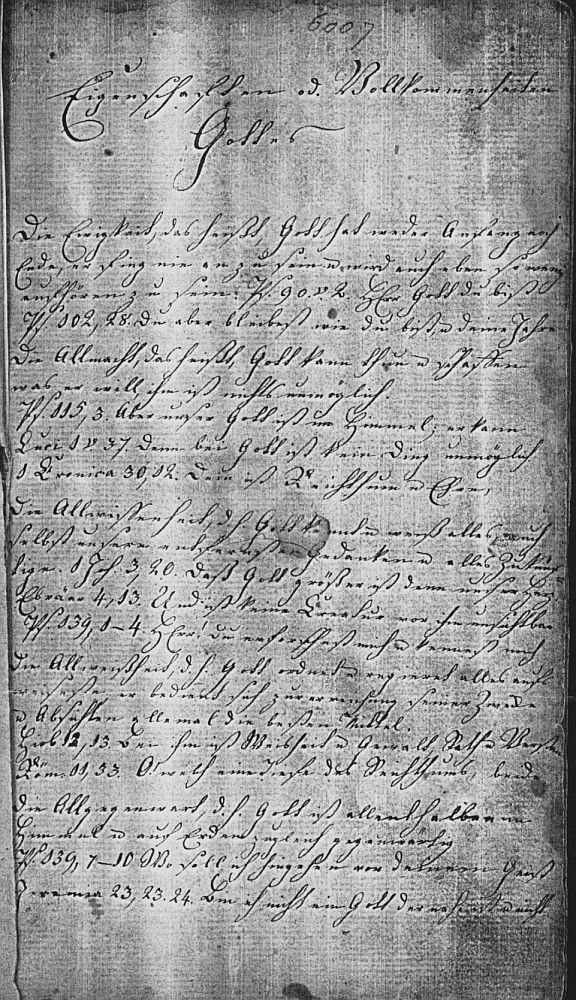 6007
Eigenschaften od. Vollkommenheiten
Gottes
Die Ewigkeit, das heißt, Gott hat weder Anfang noch
Ende, er fing nie an zu sein u wird auch eben so wenig
aufhören zu sein. Ps. 90. v 2. Herr Gott du bist
Ps 102, 28. Du aber bleibest wie du bist, u deine Jahre
Die Allmacht, das heißt, Gott kann thun u schaffen
was er will, ihm ist nichts unmöglich.
Ps 115, 3. Aber unser Gott ist im Himmel; er kann
Luci 1 v 37. Denn bei Gott ist kein Ding unmöglich
1 Cronica 30, 12. Dein ist Reichthum u Ehre,
Die Allwissenheit, d. h. Gott u weiß alles, auch
selbst unsere entferntesten Gedanken u alles Zukünf-
tige. 1 Joh. 3, 20. Daß Gott größer ist denn unser Herz
Ebräer 4, 13. Und ist keine Creatur vor ihm unsichtbar
Ps 139, 1-4. Herr: Du erforschest mich u kennest mich
Die Allweisheit, d. h. Gott ordnet u regieret alles aufs
weiseste er bedient sich zur erreichung seiner Zwecke
u Absichten allemal die besten Mittel.
Hiob 12, 13. Bei ihm ist Weisheit u Gewalt, Rath u Verstand
Röm. 11, 33. O welch eine Tiefe des Reichthums, beide
Die Allgegenwart, d. h. Gott ist allenthalben im
Himmel u auf Erden zugleich gegenwärtig
Ps. 139, 7-10 Wo soll ich hingehen vor deinem Geist
Jeremia 23, 23. 24. Bin ich nicht ein Gott der nahe ist u nicht